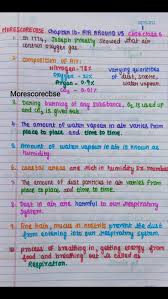 MORESCORECBSE Chapter 16- AIR AROUND US CBSE class 6
1. In 1774, Joseph Priestly showed that air
contain oxygen gas
2. COMPOSITION OF AIR:
Nitrogen - 78%
Oxygen - 21%
Argon - 0.9%
CO2 - 0.01%
varying quantities
of dust, smoke,
water vapour.
Morescorecbse
3. During burning of any substance, O2 is used up
and CO2 is given out.
4. The amount of water vapour in air varies from
place to place and time to time.
5. The amount of water vapour in air is known as
humidity.
6. coastal areas are rich in humidity
7. The amount of dust particles in air varies from
place to place, and time to time.
8. Dust in air are harmful to our respiratory
system
9. Fine hair, mucus in nostrils prevent the dust
from entering into our respiratory system.
10. process of breathing in, getting energy from
food and breathing out is called as
Respiration.